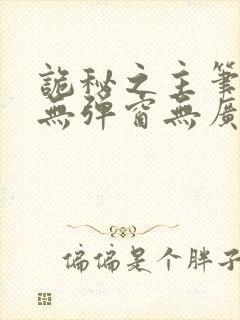 詭秘之主筆
無彈窗無廣
偏偏是个胖子